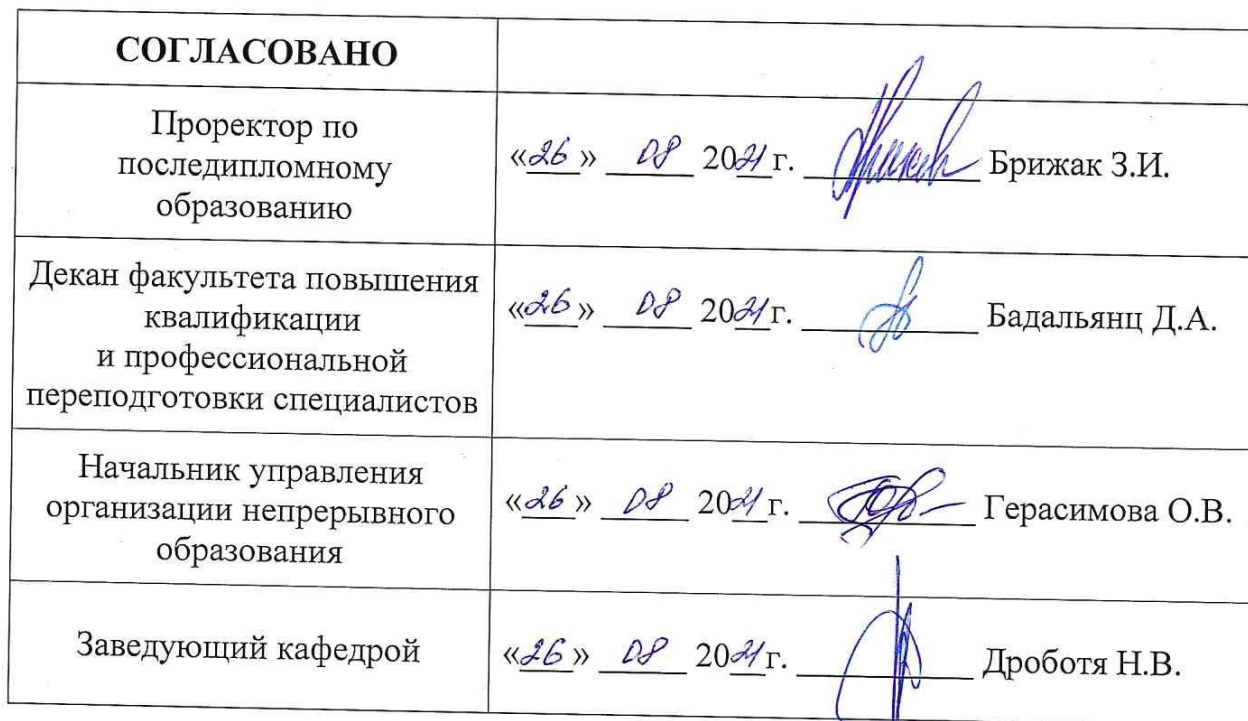 СОГЛАСОВАНО
Проректор по
последипломному
образованию
«26» 08 2021г. Брижак З.И.
Декан факультета повышения
квалификации
и профессиональной
переподготовки специалистов
«26» 08 2021г. Бадальянц Д.А.
Начальник управления
организации непрерывного
образования
«26» 08 2021г. Герасимова О.В.
Заведующий кафедрой
«26» 08 2021г. Дроботя Н.В.